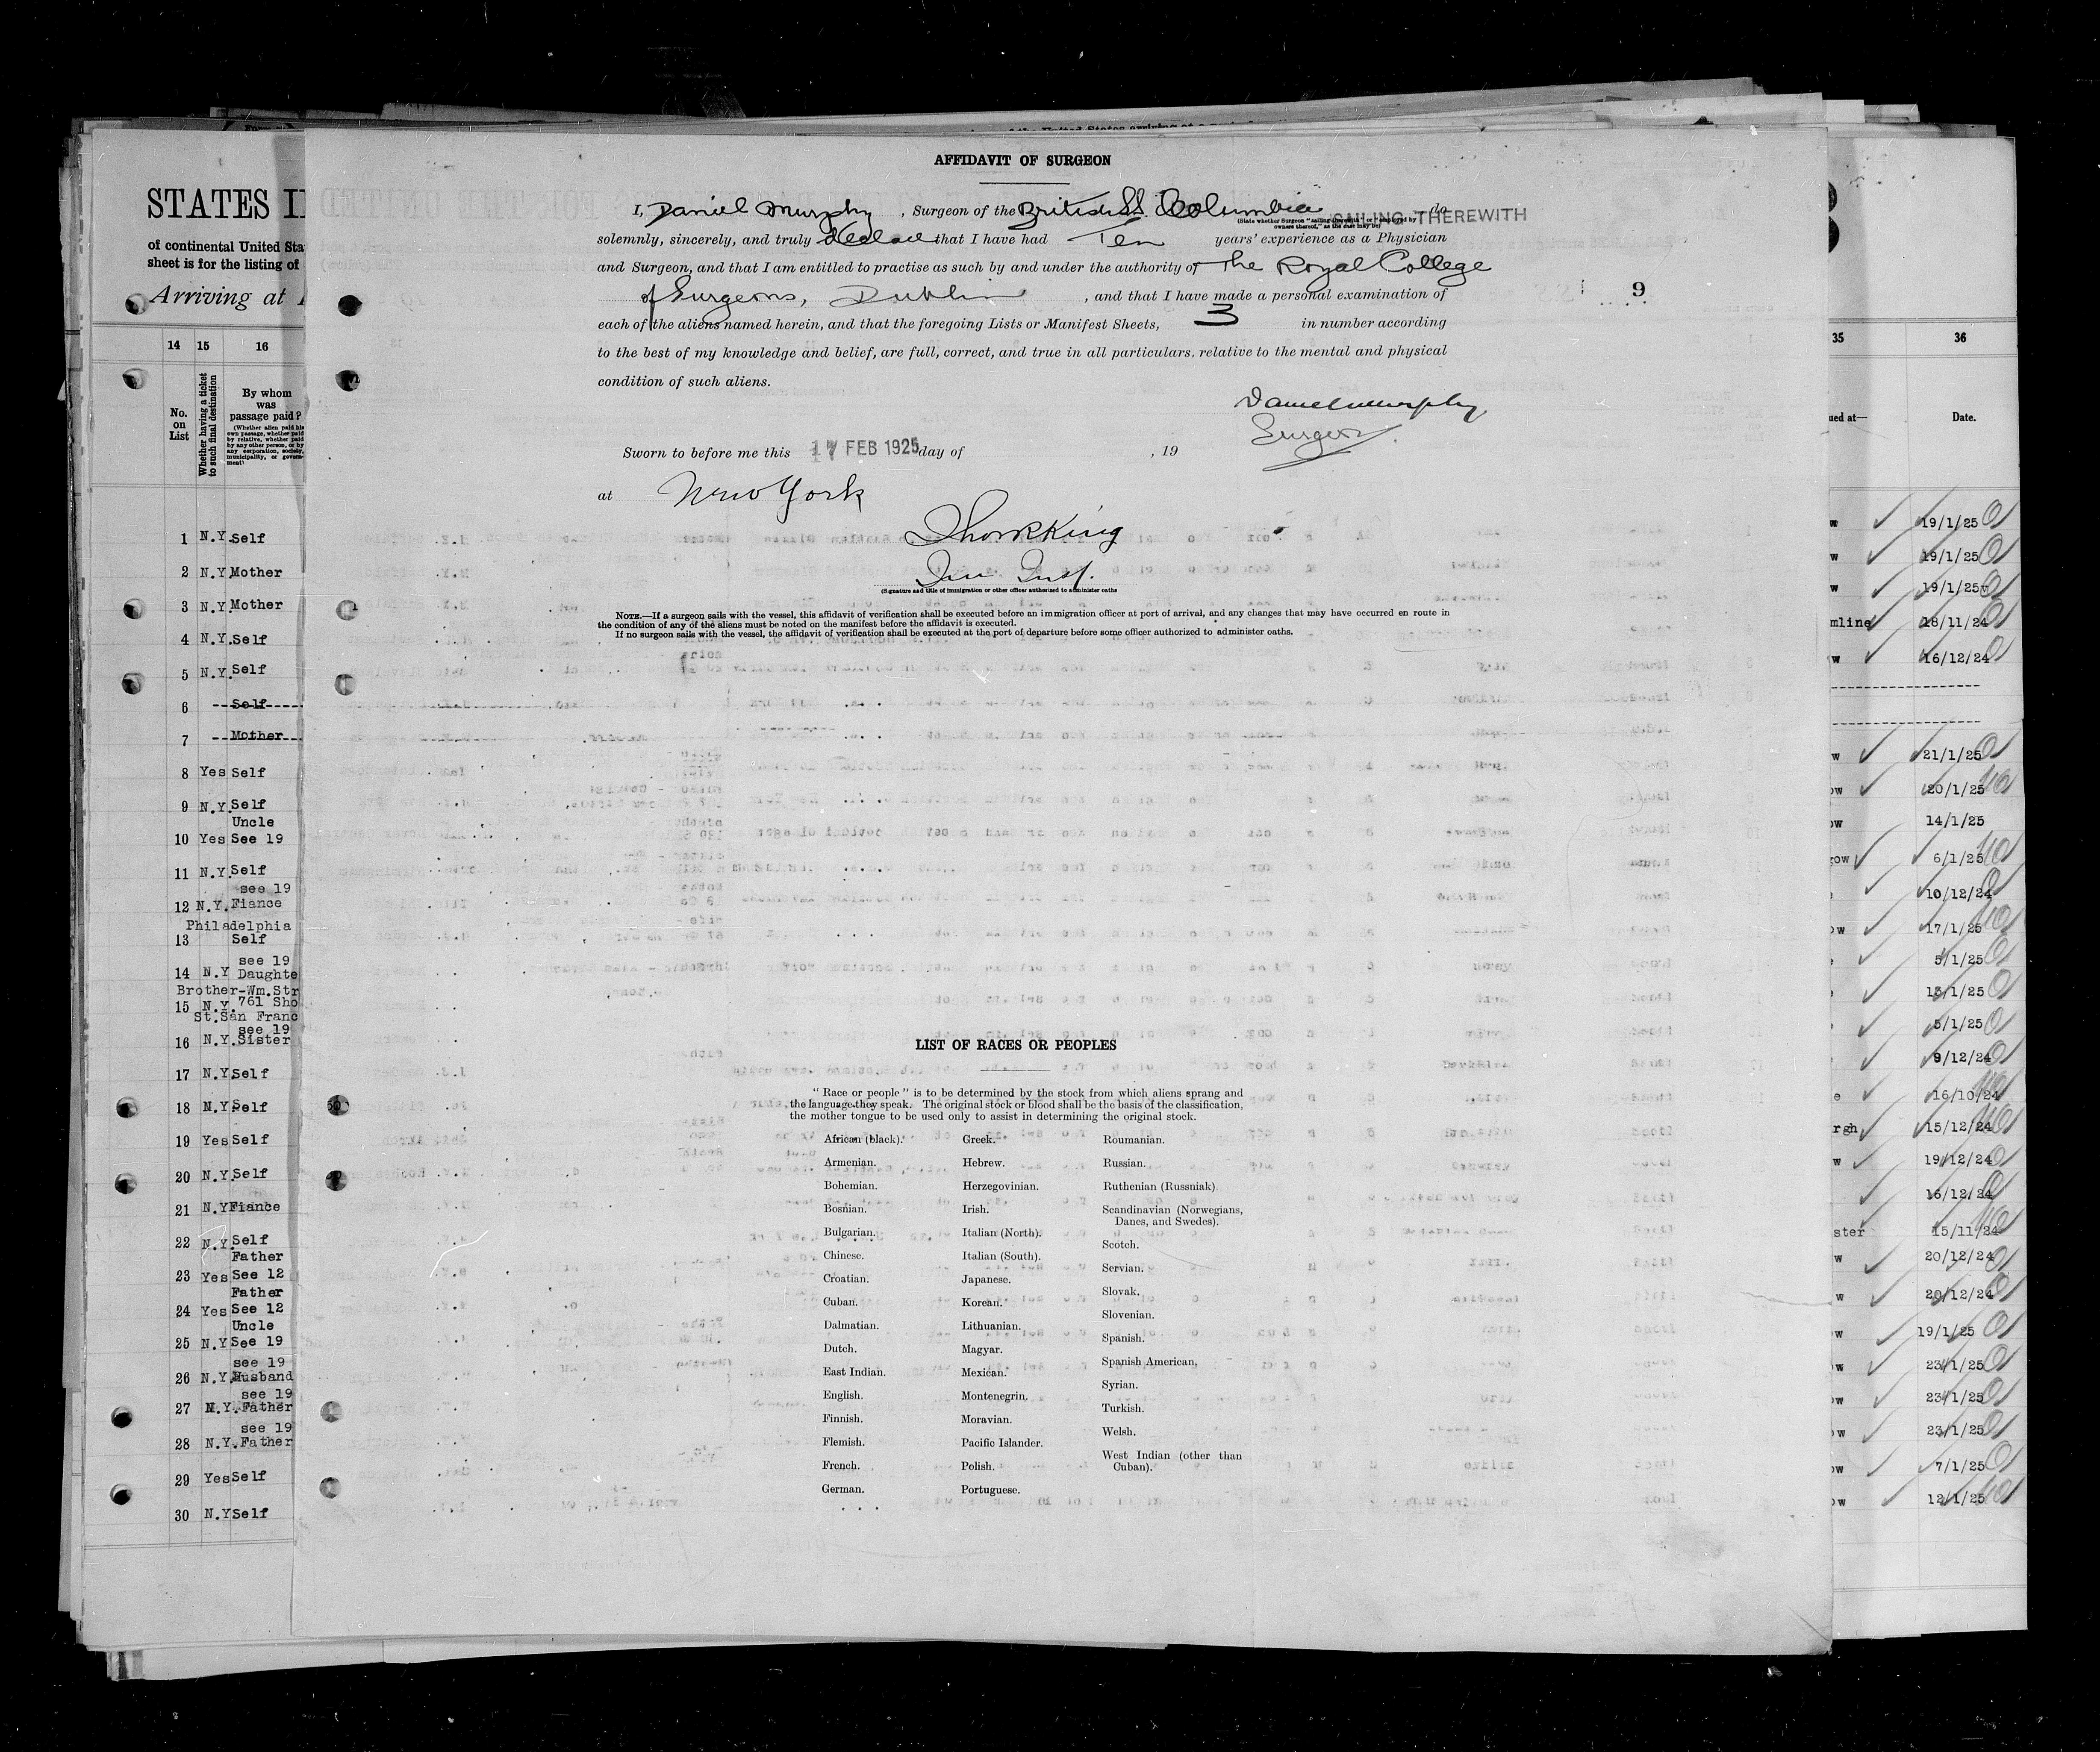 STATES I
of continental United Sta
sheet is for the listing of
Arriving at
14 15 16
No. on List
Whether having a ticket to such final destination
By whom was passage paid?
(Whether alien paid his own passage, whether paid by relative, whether paid by any other person, or by any corporation, society, municipality, or government)
1 N.Y. Self
2 N.Y Mother
3 N.Y Mother
4 N.Y. Self
5 N.Y. Self
6 Self
7 Mother
8 Yes Self
9 N.Y. Self
Uncle
10 Yes See 19
11 N.Y. Self
see 19
12 N.Y. Fiance
Philadelphia
13 Self
see 19
14 N.Y Daughte
Brother-Wm.Str
15 N.Y. 761 Sho
St.San Franc
see 19
16 N.Y. Sister
17 N.Y. Self
18 N.Y. Self
19 Yes Self
20 N.Y. Self
21 N.Y Fiance
22 N.Y. Self
Father
23 Yes See 12
Father
24 Yes See 12
Uncle
25 N.Y See 19
see 19
26 N.Y. Husband
see 19
27 N.Y. Father
see 19
28 N.Y. Father
29 Yes Self
30 N.Y Self
AFFIDAVIT OF SURGEON
I, Daniel Murphy, Surgeon of the British SS. Columbia SAILING THEREWITH do
(State whether Surgeon "sailing therewith" or "employed by owners thereof," as the case may be)
solemnly, sincerely, and truly declare that I have had Ten years' experience as a Physician
and Surgeon, and that I am entitled to practise as such by and under the authority of The Royal College
of Surgeons, Dublin, and that I have made a personal examination of
each of the aliens named herein, and that the foregoing Lists or Manifest Sheets, 3 in number according
to the best of my knowledge and belief, are full, correct, and true in all particulars. relative to the mental and physical
condition of such aliens.
9
Daniel Murphy
Surgeon
Sworn to before me this 17 FEB 1925 day of , 19
at New York
King
(Signature and title of immigration or other officer authorized to administer oaths
NOTE.—If a surgeon sails with the vessel, this affidavit of verification shall be executed before an immigration officer at port of arrival, and any changes that may have occurred en route in
the condition of any of the aliens must be noted on the manifest before the affidavit is executed.
If no surgeon sails with the vessel, the affidavit of verification shall be executed at the port of departure before some officer authorized to administer oaths.
LIST OF RACES OR PEOPLES
"Race or people" is to be determined by the stock from which aliens sprang and
the language they speak. The original stock or blood shall be the basis of the classification,
the mother tongue to be used only to assist in determining the original stock.
African (black).
Armenian.
Bohemian.
Bosnian.
Bulgarian.
Chinese.
Croatian.
Cuban.
Dalmatian.
Dutch.
East Indian.
English.
Finnish.
Flemish.
French.
German.
Greek.
Hebrew.
Herzegovinian.
Irish.
Italian (North).
Italian (South).
Japanese.
Korean.
Lithuanian.
Magyar.
Mexican.
Montenegrin.
Moravian.
Pacific Islander.
Polish.
Portuguese.
Roumanian.
Russian.
Ruthenian (Russniak).
Scandinavian (Norwegians,
Danes, and Swedes).
Scotch.
Servian.
Slovak.
Slovenian.
Spanish.
Spanish American.
Syrian.
Turkish.
Welsh.
West Indian (other than
Cuban).
35 36
ued at— Date.
w 19/1/25
w 19/1/25
w 19/1/25
mline 18/11/24
w 16/12/24
w 21/1/25
ow 20/1/25
ow 14/1/25
gow 6/1/25
10/12/24
ow 17/1/25
5/1/25
13/1/25
5/1/25
9/12/24
e 16/10/24
rgh 15/12/24
w 19/12/24
16/12/24
ster 15/11/24
w 20/12/24
w 20/12/24
ow 19/1/25
ow 23/1/25
ow 23/1/25
ow 23/1/25
ow 7/1/25
ow 12/1/25